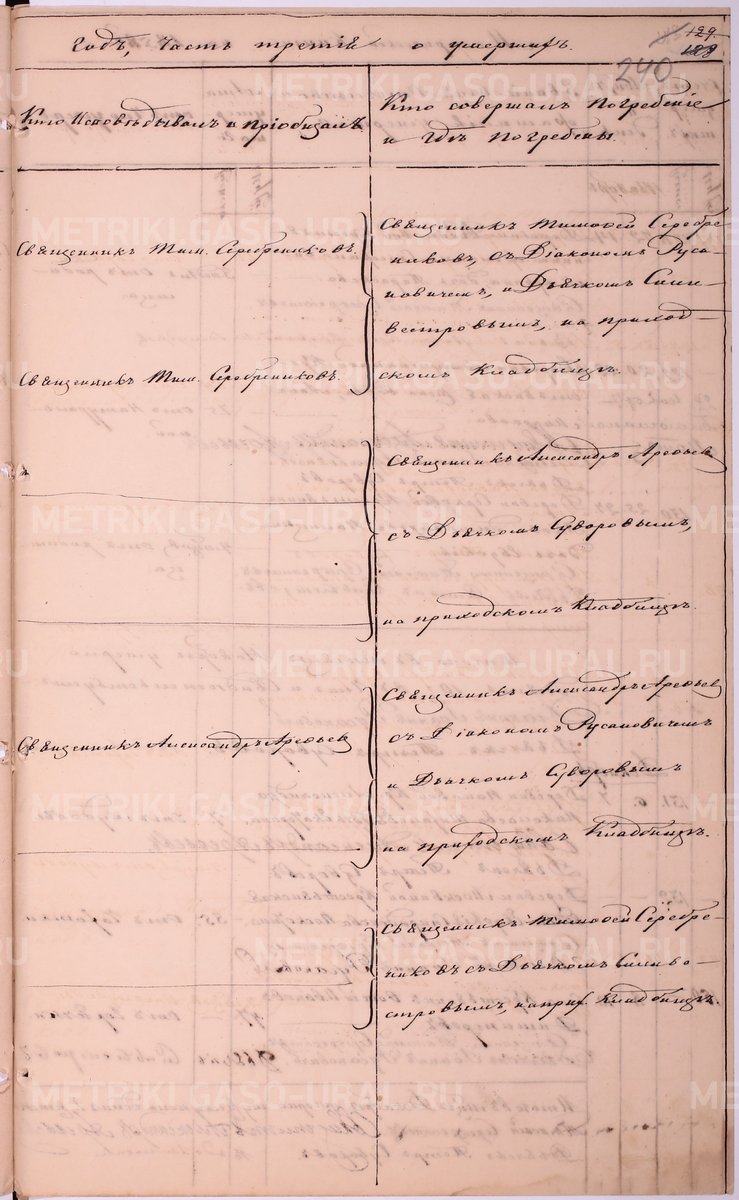 Годъ, Часть третія о умершихъ.
129.
128
240
Кто Исповѣдывалъ и Пріобщалъ
Кто совершалъ Погребеніе
и Гдѣ Погребены
Священникъ Тим. Серебренниковъ.
Священникъ Тимофей Серебре
никовъ, съ Діакономъ Руса-
новичемъ, и Дьячкомъ Сили-
вестровымъ, на приход-
скомъ Кладбищѣ.
Священникъ Тим. Серебренниковъ.
Священникъ Александръ Арефьевъ
съ Дьячкомъ Суворовымъ,
на приходскомъ Кладбищѣ.
Священникъ Александръ Арефьевъ
Священникъ Александръ Арефьевъ
съ Діакономъ Русановичемъ
и Дьячкомъ Суворовымъ
на приходскомъ Кладбищѣ.
Священникъ Тимофей Серебре-
никовъ съ Дьячкомъ Сильве-
стровымъ, на прих. Кладбищѣ.
METRIKI.GASO-URAL.RU